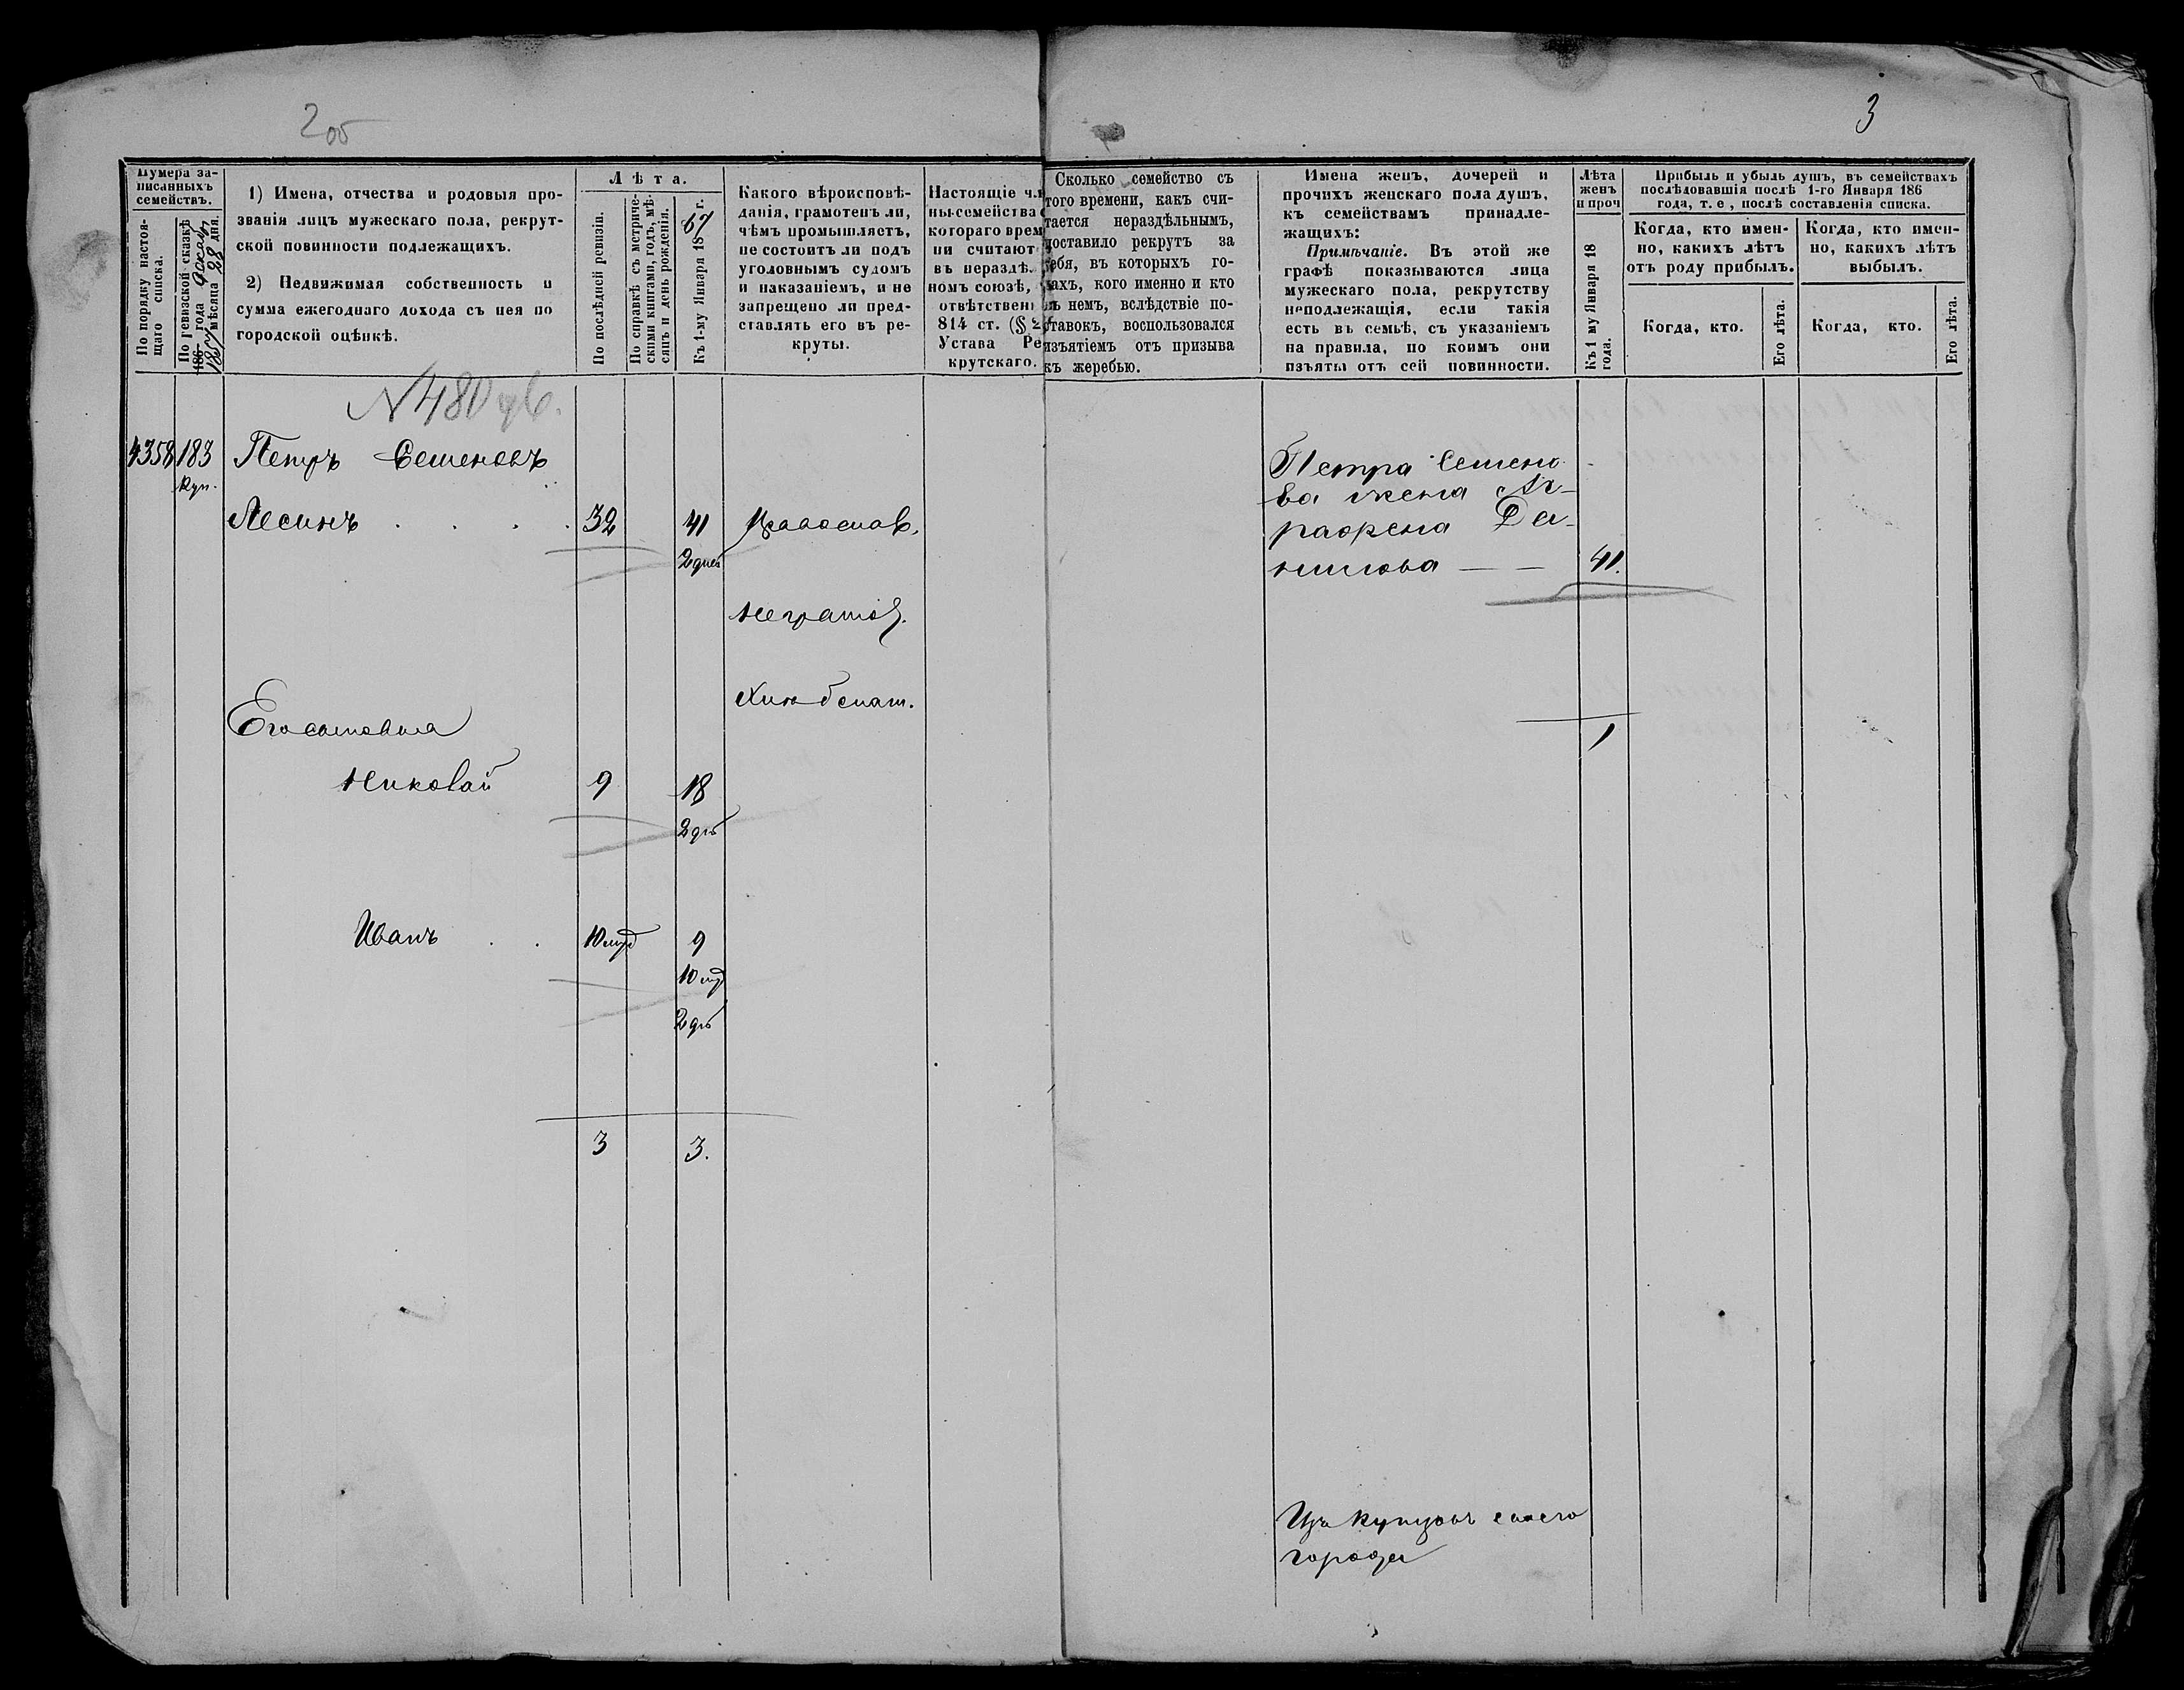 2 об
3
Нумера за-
писанныхъ
семействъ.
По порядку настоя-
щаго списка.
По ревизской сказкѣ
186 года
1857 мѣсяца 28 дня.
1) Имена, отчества и родовыя про-
званія лицъ мужескаго пола, рекрут-
ской повинности подлежащихъ.
2) Недвижимая собственность и
сумма ежегоднаго дохода съ нея по
городской оцѣнкѣ.
Лѣта.
По послѣдней ревизіи.
По справкѣ съ метриче-
скими книгами, годъ, мѣ-
сяцъ и день рожденія.
Къ 1-му Января 1867 г.
Какого вѣроисповѣ-
данія, грамотенъ ли,
чѣмъ промышляетъ,
не состоитъ ли подъ
уголовнымъ судомъ
и наказаніемъ, и не
запрещено ли пред-
ставлять его въ ре-
круты.
Настоящіе чл
ны семейства с
котораго врем
ни считают
въ нераздѣ
номъ союзѣ,
отвѣтствен
814 ст. (§ 2
Устава Ре
крутскаго.
Сколько семейство съ
того времени, какъ счи-
тается нераздѣльнымъ,
поставило рекрутъ за
себя, въ которыхъ го-
дахъ, кого именно и кто
въ немъ, вслѣдствіе по-
ставокъ, воспользовался
изъятіемъ отъ призыва
къ жеребью.
Имена женъ, дочерей и
прочихъ женскаго пола душъ,
къ семействамъ принадле-
жащихъ:
Примѣчаніе. Въ этой же
графѣ показываются лица
мужескаго пола, рекрутству
неподлежащія, если такія
есть въ семьѣ, съ указаніемъ
на правила, по коимъ они
изъяты отъ сей повинности.
Лѣта
женъ
и проч
Къ 1 му Января 18
года.
Прибыль и убыль душъ, въ семействахъ
послѣдовавшія послѣ 1-го Января 186
года, т. е , послѣ составленія списка.
Когда, кто имен-
но, какихъ лѣтъ
отъ роду прибылъ.
Когда, кто имен-
но, какихъ лѣтъ
выбылъ.
Когда, кто.
Его лѣта.
Когда, кто.
Его лѣта.
N 480
4358 183 Петръ Семеновъ
Куп.
Лесинъ 32 41 Православ.
2 дней
неграмо
хлѣбопаш.
Его сыновья
Николай 9 18
2 дн
Иванъ 10 9
10
2 дн
3 3.
Петра Семено
ва жена Аг-
рафена Да-
нилова — — 41.
1
Изъ купцовъ своего
города